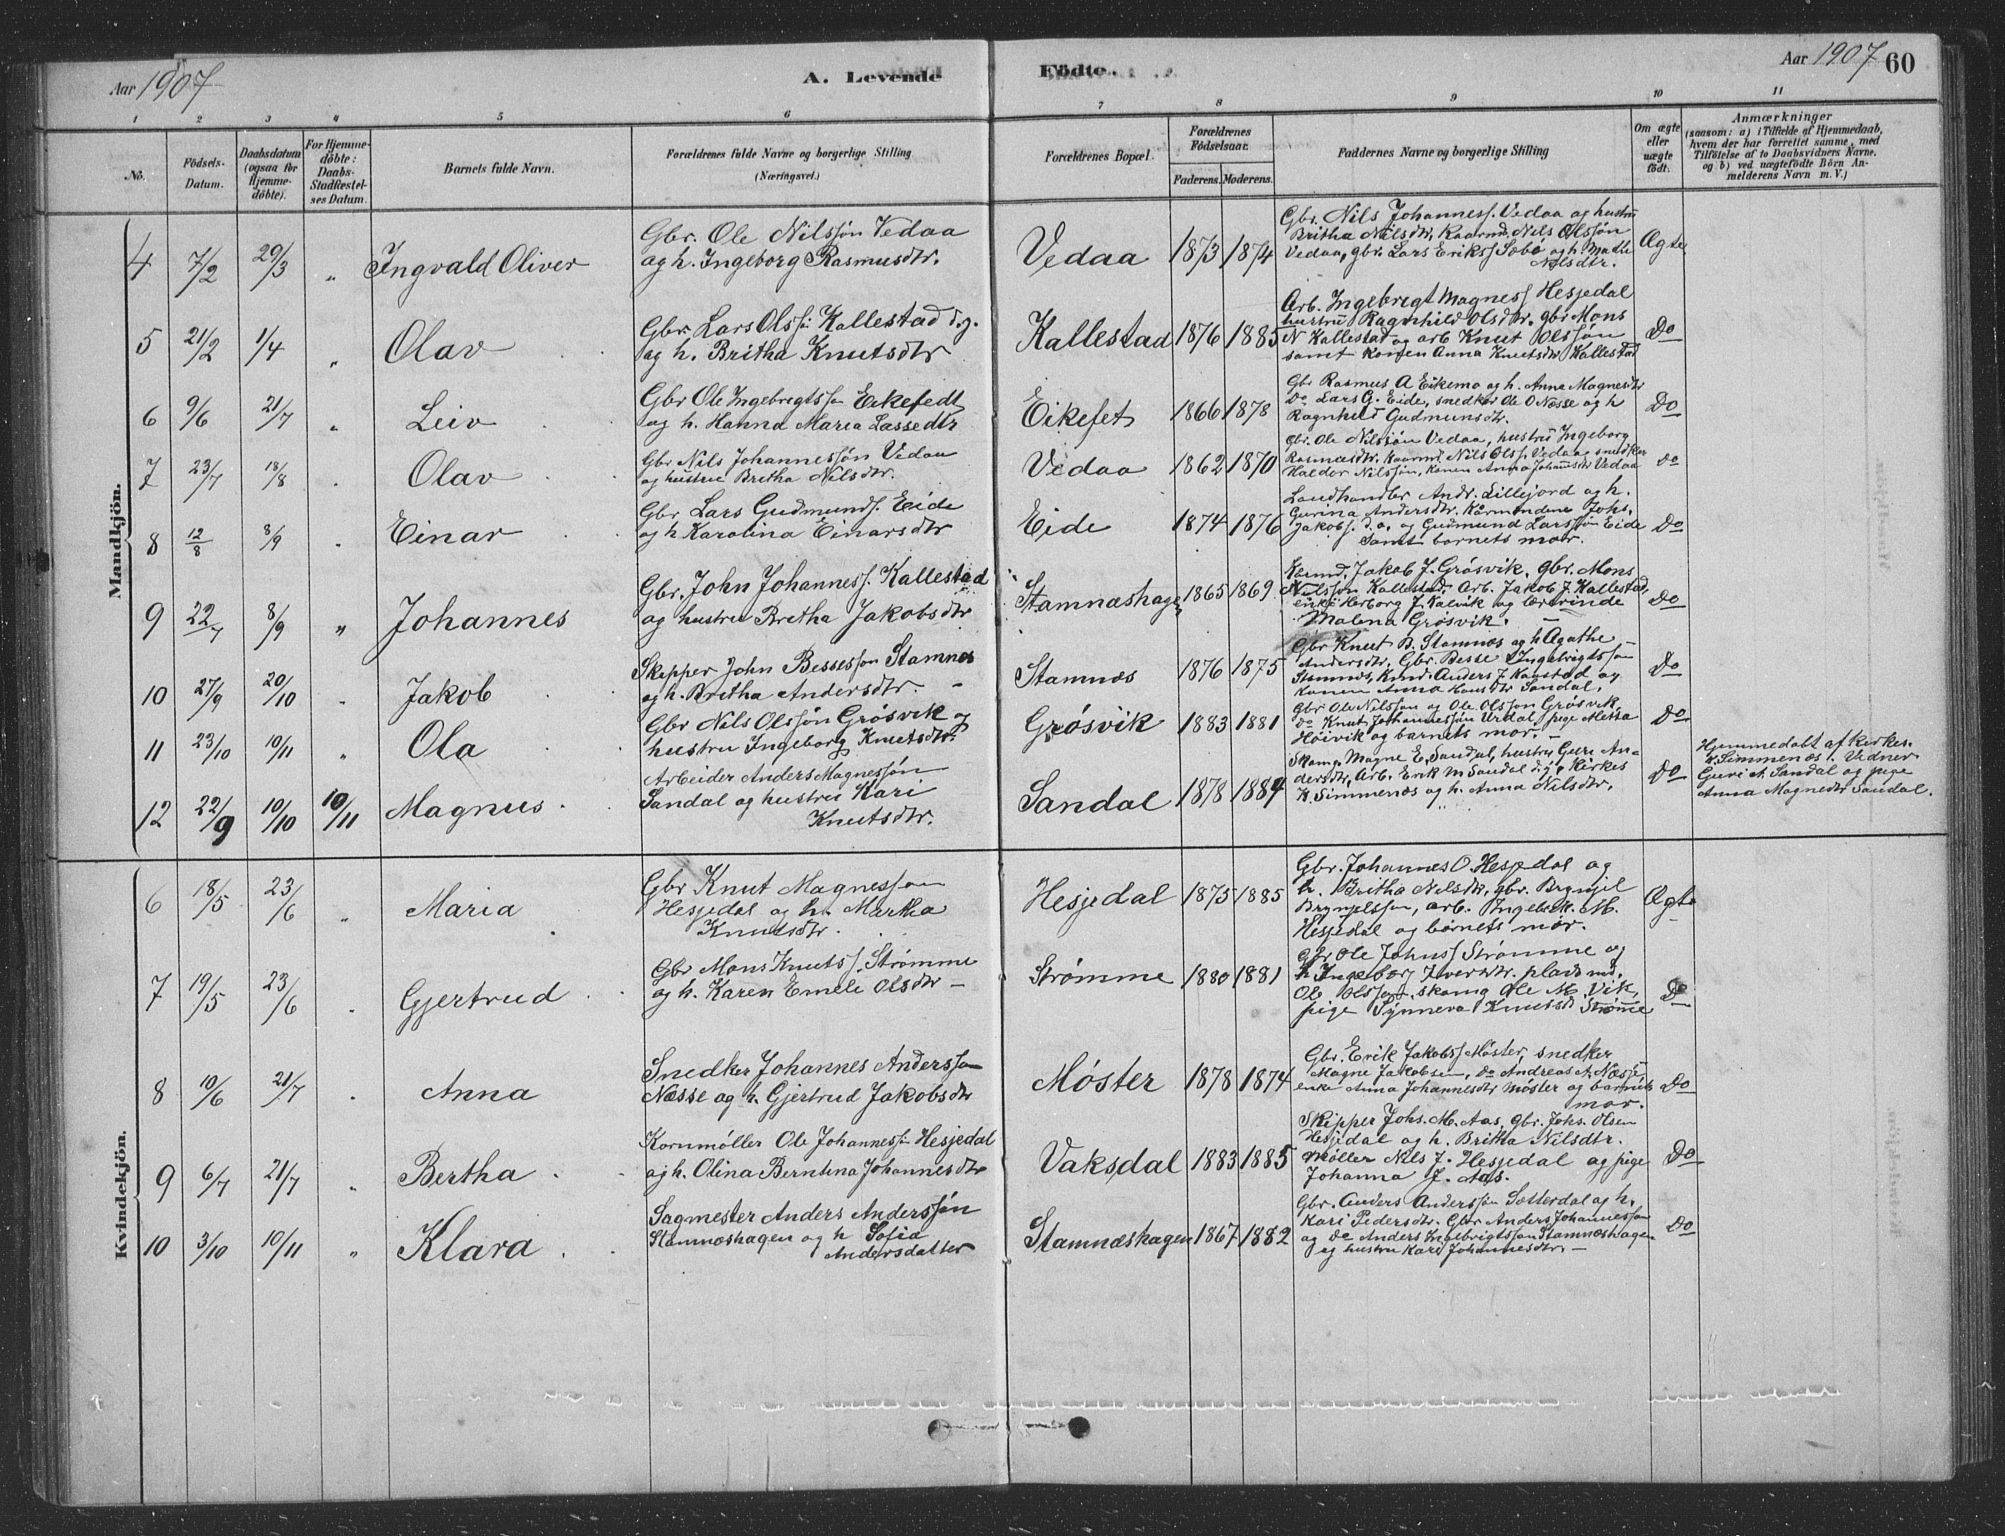 Aar 1907 A. Levende Födte. Aar 1907 60
1 2 3 4 5 6 7 8 9 10 11
No.
Födsels-Datum.
Daabsdatum (ogsaa for Hjemme-döbte).
For Hjemme-döbte: Daabs-Stadfæstel-ses Datum.
Barnets fulde Navn.
Forældrenes fulde Navne og borgerlige Stilling
(Næringsvei.)
Forældrenes Bopæl.
Forældrenes Födselsaar.
Faderens. Moderens.
Faddernes Navne og borgerlige Stilling
Om ægte eller uægte födt.
Anmærkninger
(saasom: a) i Tilfælde af Hjemmedaab,
hvem der har forrettet samme, med
Tilföielse af to Daabsvidners Navne.
og b) ved uægtefödte Börn An-
melderens Navn m. V.)
Mandkjön.
4 7/2 29/3 " Ingvald Oliver
Gbr. Ole Nilssøn Vedaa
og h. Ingeborg Rasmusdtr.
Vedaa 1873 1874
Gbr. Nils Johanness. Vedaa og hustru
Britha Nilsdtr, Kaarmd. Nils Olssøn
Vedaa, gbr. Lars Erikss Sæbø og h. Mathe
Nilsdtr.
Ægte
5 21/2 1/4 " Olav
Gbr Lars Olss. Kallestad d.y.
og h. Britha Knutsdtr
Kallestad 1876 1885
Arb. Ingebrigt Magness Hesjedal
hustru Ragnhild Olsdtr. gbr Mons
N Kallestad og arb Knut Olssøn
samt konen Anna Knutsdtr Kallestad
Do
6 9/6 21/7 " Leiv
Gbr Ole Ingebrigtss. Eikefedt
og h. Hanna Maria Lassedtr
Eikefet 1866 1878
Gbr Rasmus A Eikemo og h. Anna Magnesdtr
Do Lars G. Eide, snedker Ole O Næsse og h
Ragnhild Gudmunsdtr.
Do
7 23/7 18/8 " Olav
Gbr Nils Johannessøn Vedaa
og hustru Britha Nilsdtr.
Vedaa 1862 1870
Gbr. Ole Nilssøn Vedaa, hustru Ingeborg
Rasmusdtr, Kaarmd Nils Olss. Vedaa, snedker
Haldor Nilssøn, Konen Anna Johannsdtr Vedaa
Do
8 12/8 8/9 " Einar
Gbr Lars Gudmunds. Eide
og h Karolina Einarsdtr
Eide 1874 1876
Landhandler Andr. Lillejord og h.
Gurina Andersdtr. Kårmændene Johs.
Jakobs. d.a. og Gudmund Larssøn Eide
Samt barnets mor.
Do
9 22/7 8/9 " Johannes
Gbr. John Johanness. Kallestad
og hustru Bretha Jakobsdtr
Stamnæshagen 1865 1869
Kårmd. Jakob J. Grøsvik, gbr. Mons
Nilsson Kallestad, Arb. Jakob J. Kallestad,
enke Herborg J. Kalvik og lærerinde
Malena Grøsvik.
Do
10 27/9 20/10 " Jakob
Skipper John Bessesson Stamnes
og h. Bretha Andersdtr. –
Stamnæs 1876 1875
Gbr Knut B. Stamnæs og h Agathe
Andersdtr, Gbr. Besse Ingebrigtsson
Stamnæs, Anders J
konen Anna Hansdtr Sandal.
Do
11 23/10 10/11 " Ola
Gbr Nils Olssøn Grøsvik og
hustru Ingeborg Knutsdtr.
Grøsvik 1883 1881
Gbr Ole Nilsson og Ole Olsson Grøsvik,
Do Knut Johannessøn Urdal, pige Metta
Høivik og barnets mor. –
Do
12 22/9 10/10 10/11 Magnus
Arbeider Anders Magnessøn
Sandal og hustru Kari
Knutsdtr.
Sandal 1878 1884
Skomg. Magne E. Sandal, hustru Guri An-
dersdtr, Arb. Erik M Sandal d.y., Kirkes
K. Simmenæs og h. Anna Nilsdtr.
Do
Hjemmedøbt af kirkes.
K. Simmenæs. Vidner
Guri A. Sandal og pige
Anna Magnedtr Sandal.
Kvindekjön.
6 18/5 23/6 " Maria
Gbr Knut Magnesson
Hesjedal og h. Martha
Knutsdtr.
Hesjedal 1875 1885
Gbr. Johannes O Hesjedal og
h. Britha Nilsdtr, gbr. Brynjel
Brynjelsson, arb. Ingebrigt M.
Hesjedal og børnets mor.
Ægte
7 19/5 23/6 " Gjertrud
Gbr Mons Knuts. Strømme
og h. Karen Emele Olsdtr –
Strømme 1880 1881
Gbr Ole Johns Strømme og
h Ingeborg Iversdtr. pladsmd.
Ole Olsson, skomg Ole M. Vik,
pige Synneva Knutsd. Strømme
Do
8 10/6 21/7 " Anna
Snedker Johannes Andersson
Næsse og h. Gjertrud Jakobsdtr
Møster 1878 1874
Gbr. Erik Jakobss Møster, snedker
Magne Jakobsen, Do Andreas A. Næsse,
enke Anna Johannesdtr Møster og barnets
mor.
Do
9 6/7 21/7 " Bertha
Kornmøller Ole Johanness. Hesjedal
og h. Olina Berntina Johannesdtr
Vaksdal 1883 1885
Skipper Johs. M. Aas, gbr. Johs. Olsen
Hesjedal og h. Britha Nilsdtr.
Møller Nils J. Hesjedal og pige
Johanna J. Aas.
Do
10 3/10 10/11 " Klara
Sagmester Anders Anderssøn
Stamnæshagen og h Sofia
Andersdatter
Stamnæshagen 1867 1882
Gbr. Anders Anderssøn Sætterdal og h.
Kari Pedersdtr. Gbr Anders Johannesson
og Do Anders Ingebrigtsson Stamnæshagen
og hustru Kari Johannesdtr. –
Do